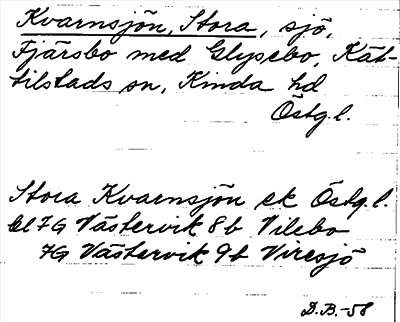 Kvarnsjön, Stora, sjö,
Fjärsbo med Glysebo, Kät-
tilstads sn, Kinda hd
Östg.l.
Stora Kvarnsjön ek Östg.l.
bl 7G Västervik 8b Vilebo
7G Västervik 9b Viresjö
D.B.-58